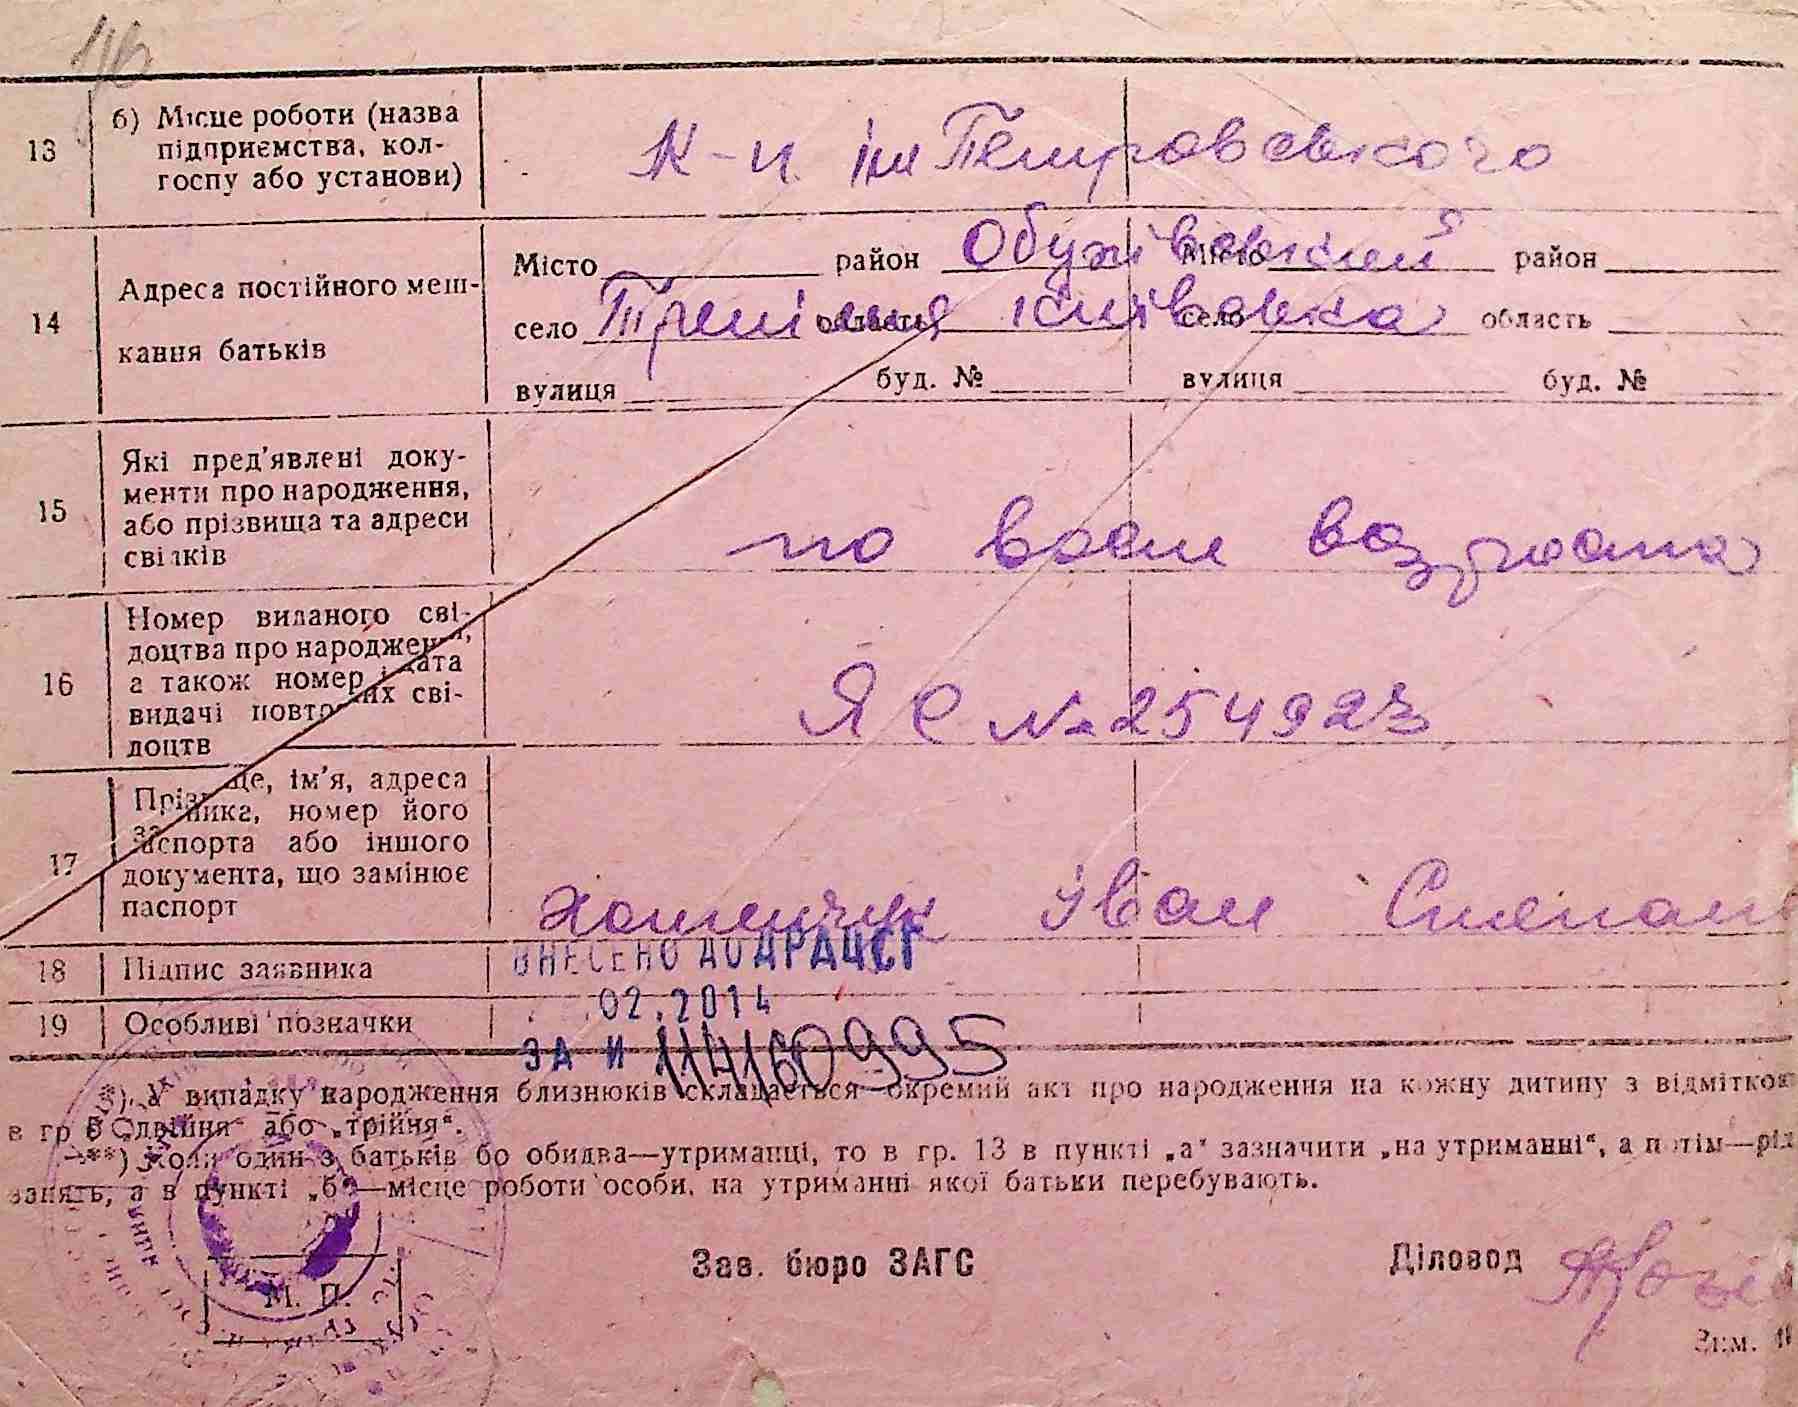 13 б) Місце роботи (назва
підприємства, кол-
госпу або установи)
К-п. ім Петровського
14 Адреса постійного меш-
кання батьків
Місто район Обухівський Місто район
село Трепілля область Київська село область
вулиця буд. № вулиця буд. №
15 Які пред'явлені доку-
менти про народження,
або прізвища та адреси
свідків
по восм возраста
16 Номер виданого сві-
доцтва про народження,
а також номер і дата
видачі повторних сві-
доцтв
ЯС № 254923
17 Прізвище, ім'я, адреса
заявника, номер його
паспорта або іншого
документа, що замінює
паспорт
Хоменчук Іван Степан
18 Підпис заявника
ВНЕСЕНО ДО ДРАЦСГ
02.2014
19 Особливі позначки
ЗА И 114160995
*) У випадку народження близнюків складається окремий акт про народження на кожну дитину з відміткою
в гр 5 „двійня“ або „трійня“.
**) Коли один з батьків бо обидва—утриманці, то в гр. 13 в пункті „а“ зазначити „на утриманні“, а потім—рід
занять, а в пункті „б“—місце роботи особи, на утриманні якої батьки перебувають.
Зав. бюро ЗАГС Діловод
М. П.
Зам.